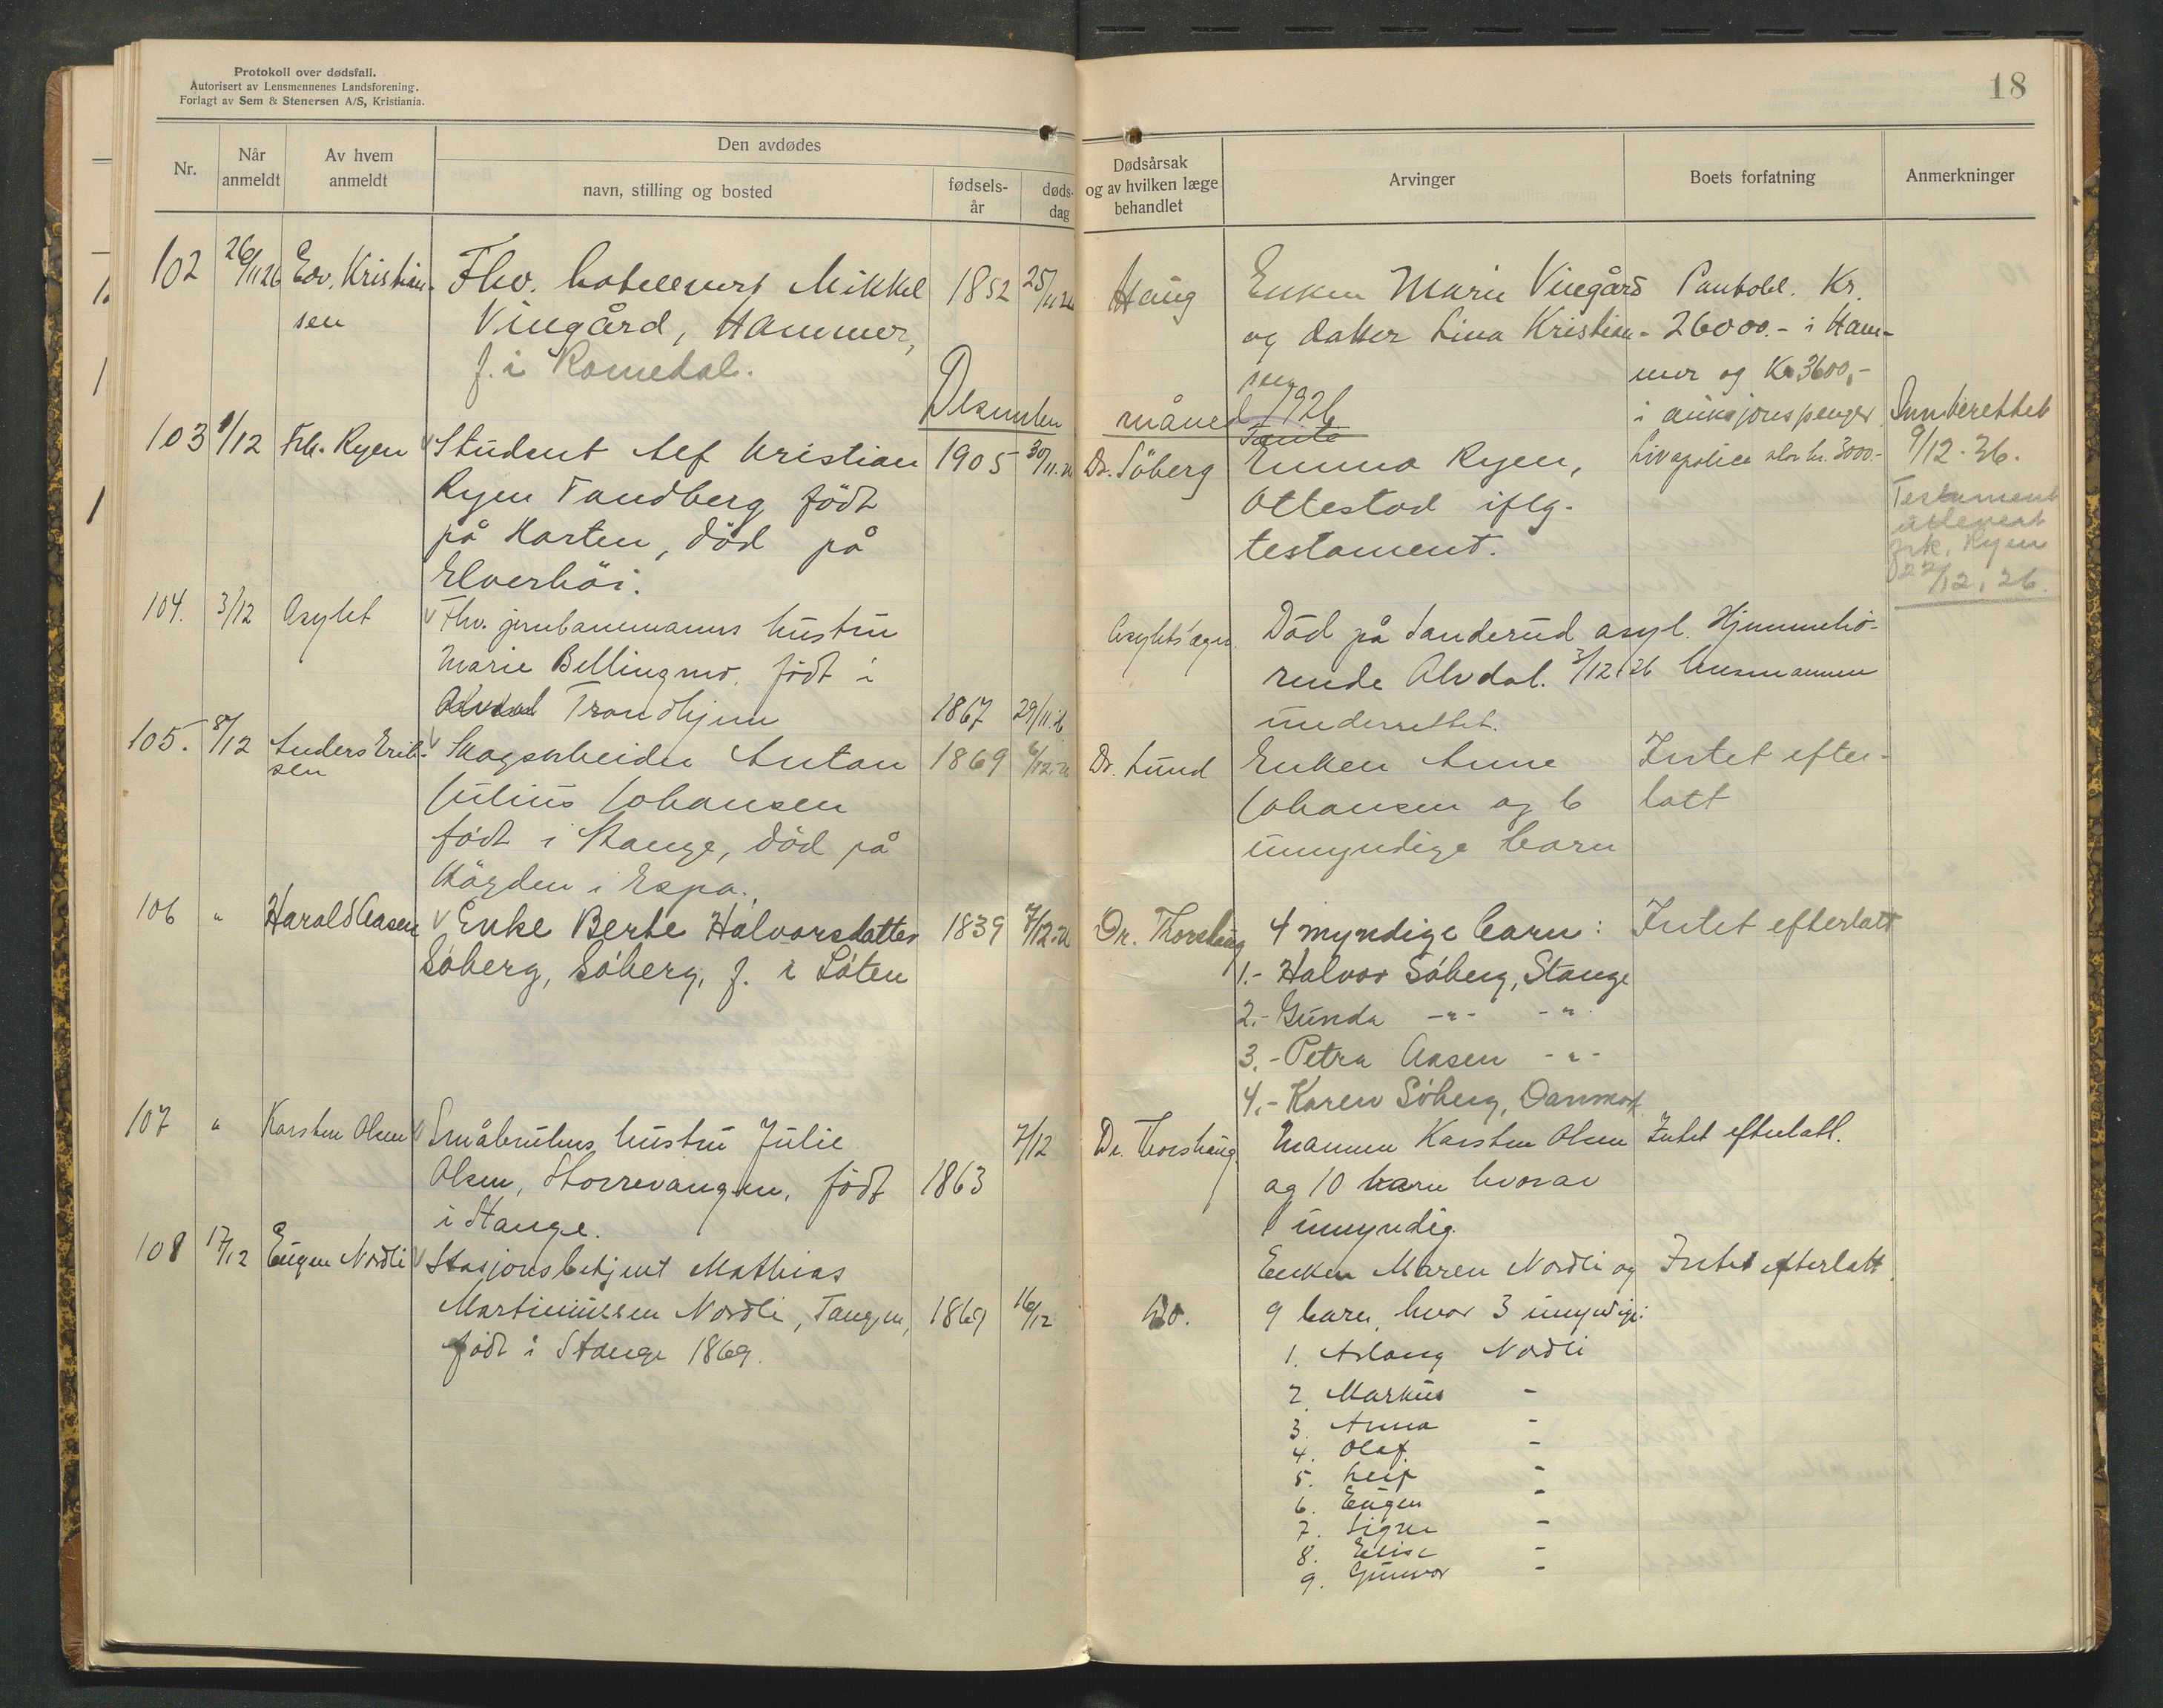 Protokoll over dødsfall.
Autorisert av Lensmennenes Landsforening.
Forlagt av Sem & Stenersen A/S, Kristiania.
18
Nr.
Når anmeldt
Av hvem anmeldt
Den avdødes
navn, stilling og bosted
fødsels-år
døds-dag
Dødsårsak og av hvilken læge behandlet
Arvinger
Boets forfatning
Anmerkninger
102 26/11 26 Edv. Kristian- Fhv. hotellvert Mikkel 1852 25/11 26 Haug Enken Marie Vingård Pantobl. Kr.
sen Vingård, Hammer, og datter Lina Kristian- 26000.- i Ham-
f. i Romedal. sen mer og Kr 3600,-
Desember måned 1926 i auksjonspenger
103 1/12 Frk. Ryen Student Alf Kristian 1905 30/11.26 Dr. Söberg Tante Livspolice stor kr. 3000.- Innberettet
Ryen Tandberg födt Emma Ryen, 9/12.26.
på Karten, död på Ottestad iflg. Testament
Elverhöi. testament. utlevert
frk. Ryen
22/12.26.
104. 3/12 Asylet Fhv. jernbanemanns hustru Asylets læge. Död på Sanderud asyl. Hjemmehö-
Marie Bellingmo. födt i rende Alvdal. 3/12 26 husmannen
Alvdal Trondhjem 1867 29/11.26 underrettet.
105. 8/12 Anders Erik- Skogsarbeider Anton 1869 6/12.26 Dr. Lund Enken Anne Intet efter-
sen Julius Johansen Johansen og 6 latt
födt i Stange, död på umyndige barn
Högden i Espa.
106 " Harald Aasen Enke Berte Halvorsdatter 1839 7/12.26 Dr. Thorshaug 4 myndige barn: Intet efterlatt
Söberg, Söberg, f. i Löten 1.- Halvor Söberg, Stange
2.- Gunda -"- -"-
3.- Petra Aasen -"-
4.- Karen Söberg, Danmark
107 " Karsten Olsen Småbrukers hustru Julie 7/12 Dr. Thorshaug. Mannen Karsten Olsen Intet efterlatt.
Olsen, Storrevangen, födt 1863 og 10 barn hvorav
i Stange. 1 umyndig.
108 17/12 Eugen Nordli Stasjonsbetjent Mathias Enken Maren Nordli og Intet efterlatt.
Martiniussen Nordli, Tangen, 1869 16/12 do. 9 barn, hvor 3 umyndige:
födt i Stange 1869. 1. Aslaug Nordli
2. Markus -
3. Anna -
4. Olaf -
5. Leif -
6. Eugen -
7. Signe -
8. Elise -
9. Gunvor -